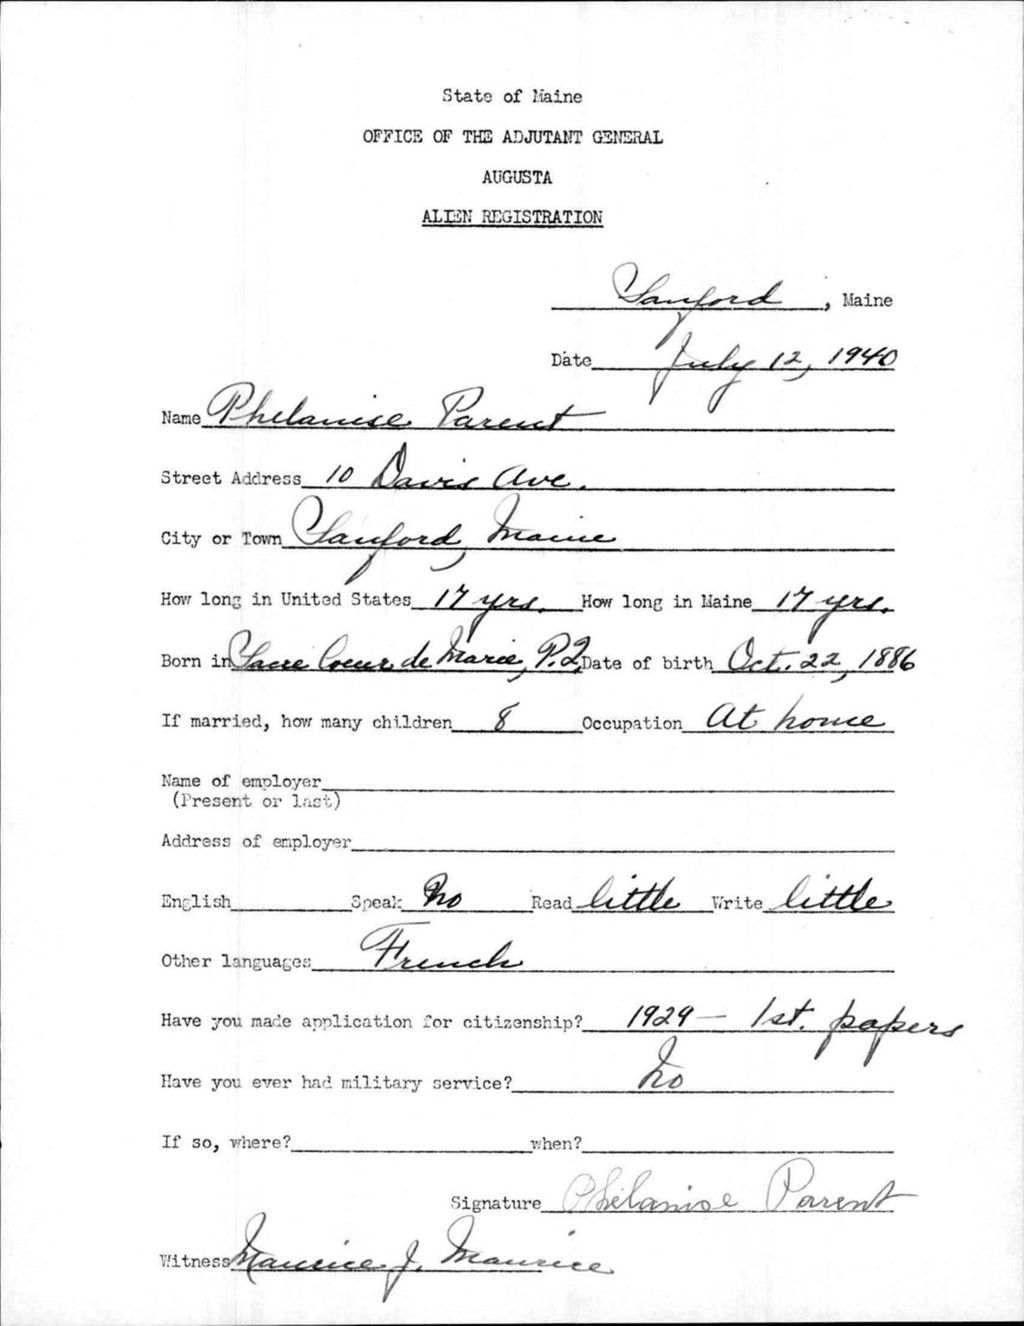 State of Maine
OFFICE OF THE ADJUTANT GENERAL
AUGUSTA
ALIEN REGISTRATION
Sanford, Maine
Date July 12, 1940
Name Phelanise Parent
Street Address 10 Davis Ave.
City or Town Sanford, Maine
How long in United States 17 yrs. How long in Maine 17 yrs.
Born in Sacre Coeur de Marie, P.Q. Date of birth Oct. 22, 1886
If married, how many children 8 Occupation At home
Name of employer
(Present or last)
Address of employer
English Speak No Read little Write little
Other languages French
Have you made application for citizenship? 1929 – 1st. papers
Have you ever had military service? No
If so, where? when?
Signature Phelanise Parent
Witness Maurice J. Maurice